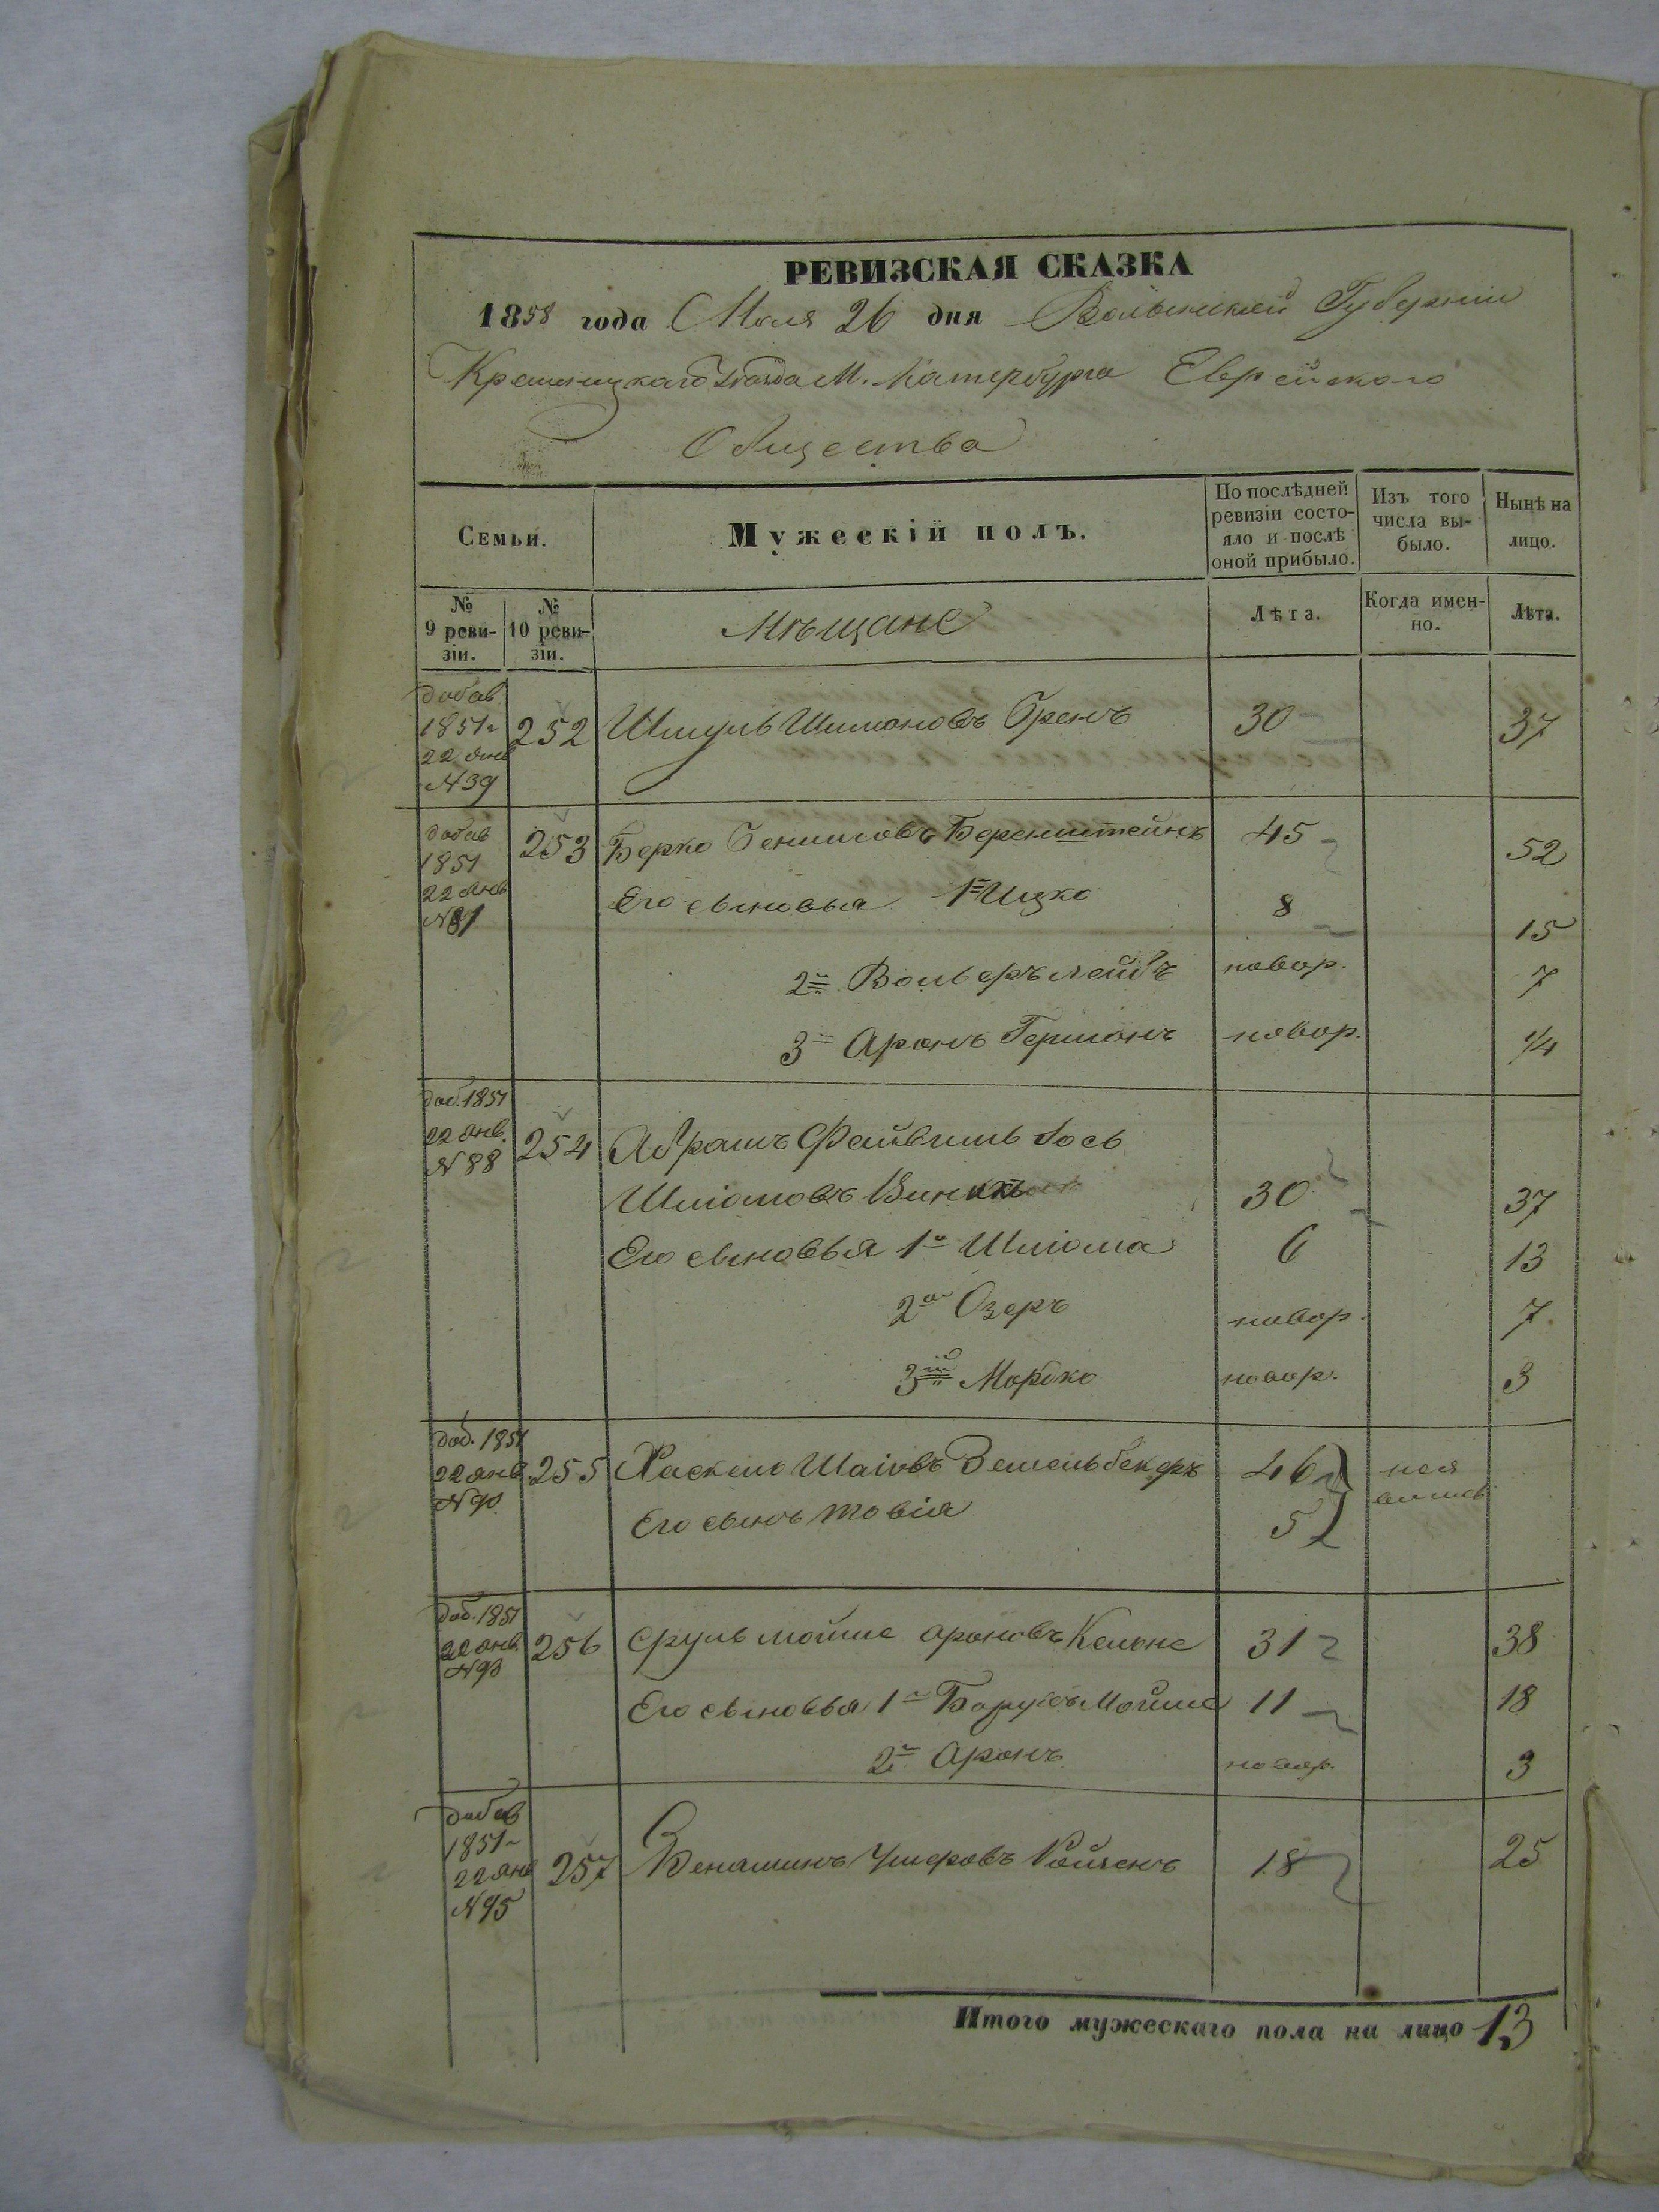 РЕВИЗСКАЯ СКАЗКА
1858 года Мая 26 дня Волынской Губернии
Кременецкаго Уѣзда М. Катербурга Еврейского
Общества
Семьи.
Мужескій полъ.
По послѣдней ревизіи состояло и послѣ оной прибыло.
Изъ того числа выбыло.
Нынѣ на лицо.
№ 9 ревизіи.
№ 10 ревизіи.
Мѣщане
Лѣта.
Когда именно.
Лѣта.
добав 1851 22 янв N 39
252 Шмуль Шимоновъ 30 37
добав 1851 22 янв N 81
253 Берко Беренштейнъ 45 52
Его сыновья 1й Ицко 8 15
2й Вольфъ Лейбъ новор. 7
3й Аронъ Гершонъ новор. 1/4
доб. 1851 22 янв. N 88
254 Абрамъ Файвишь Іось
Шліомовъ 30 37
Его сыновья 1й Шліома 6 13
2й Озеръ новор. 7
3й Мордко новор. 3
доб. 1851 22 янв N 90
255 Хаскель Шаіовъ Земельбекеръ 46
Его сынъ Товія 5
доб. 1851 22 янв. N 93
256 Сруль Мойше Ароновъ 31 38
Его сыновья 1й Барухъ Мойше 11 18
2й Аронъ новор. 3
добав 1851 22 янв N 95
257 Веніаминъ Ушеровъ 18 25
Итого мужескаго пола на лицо 13